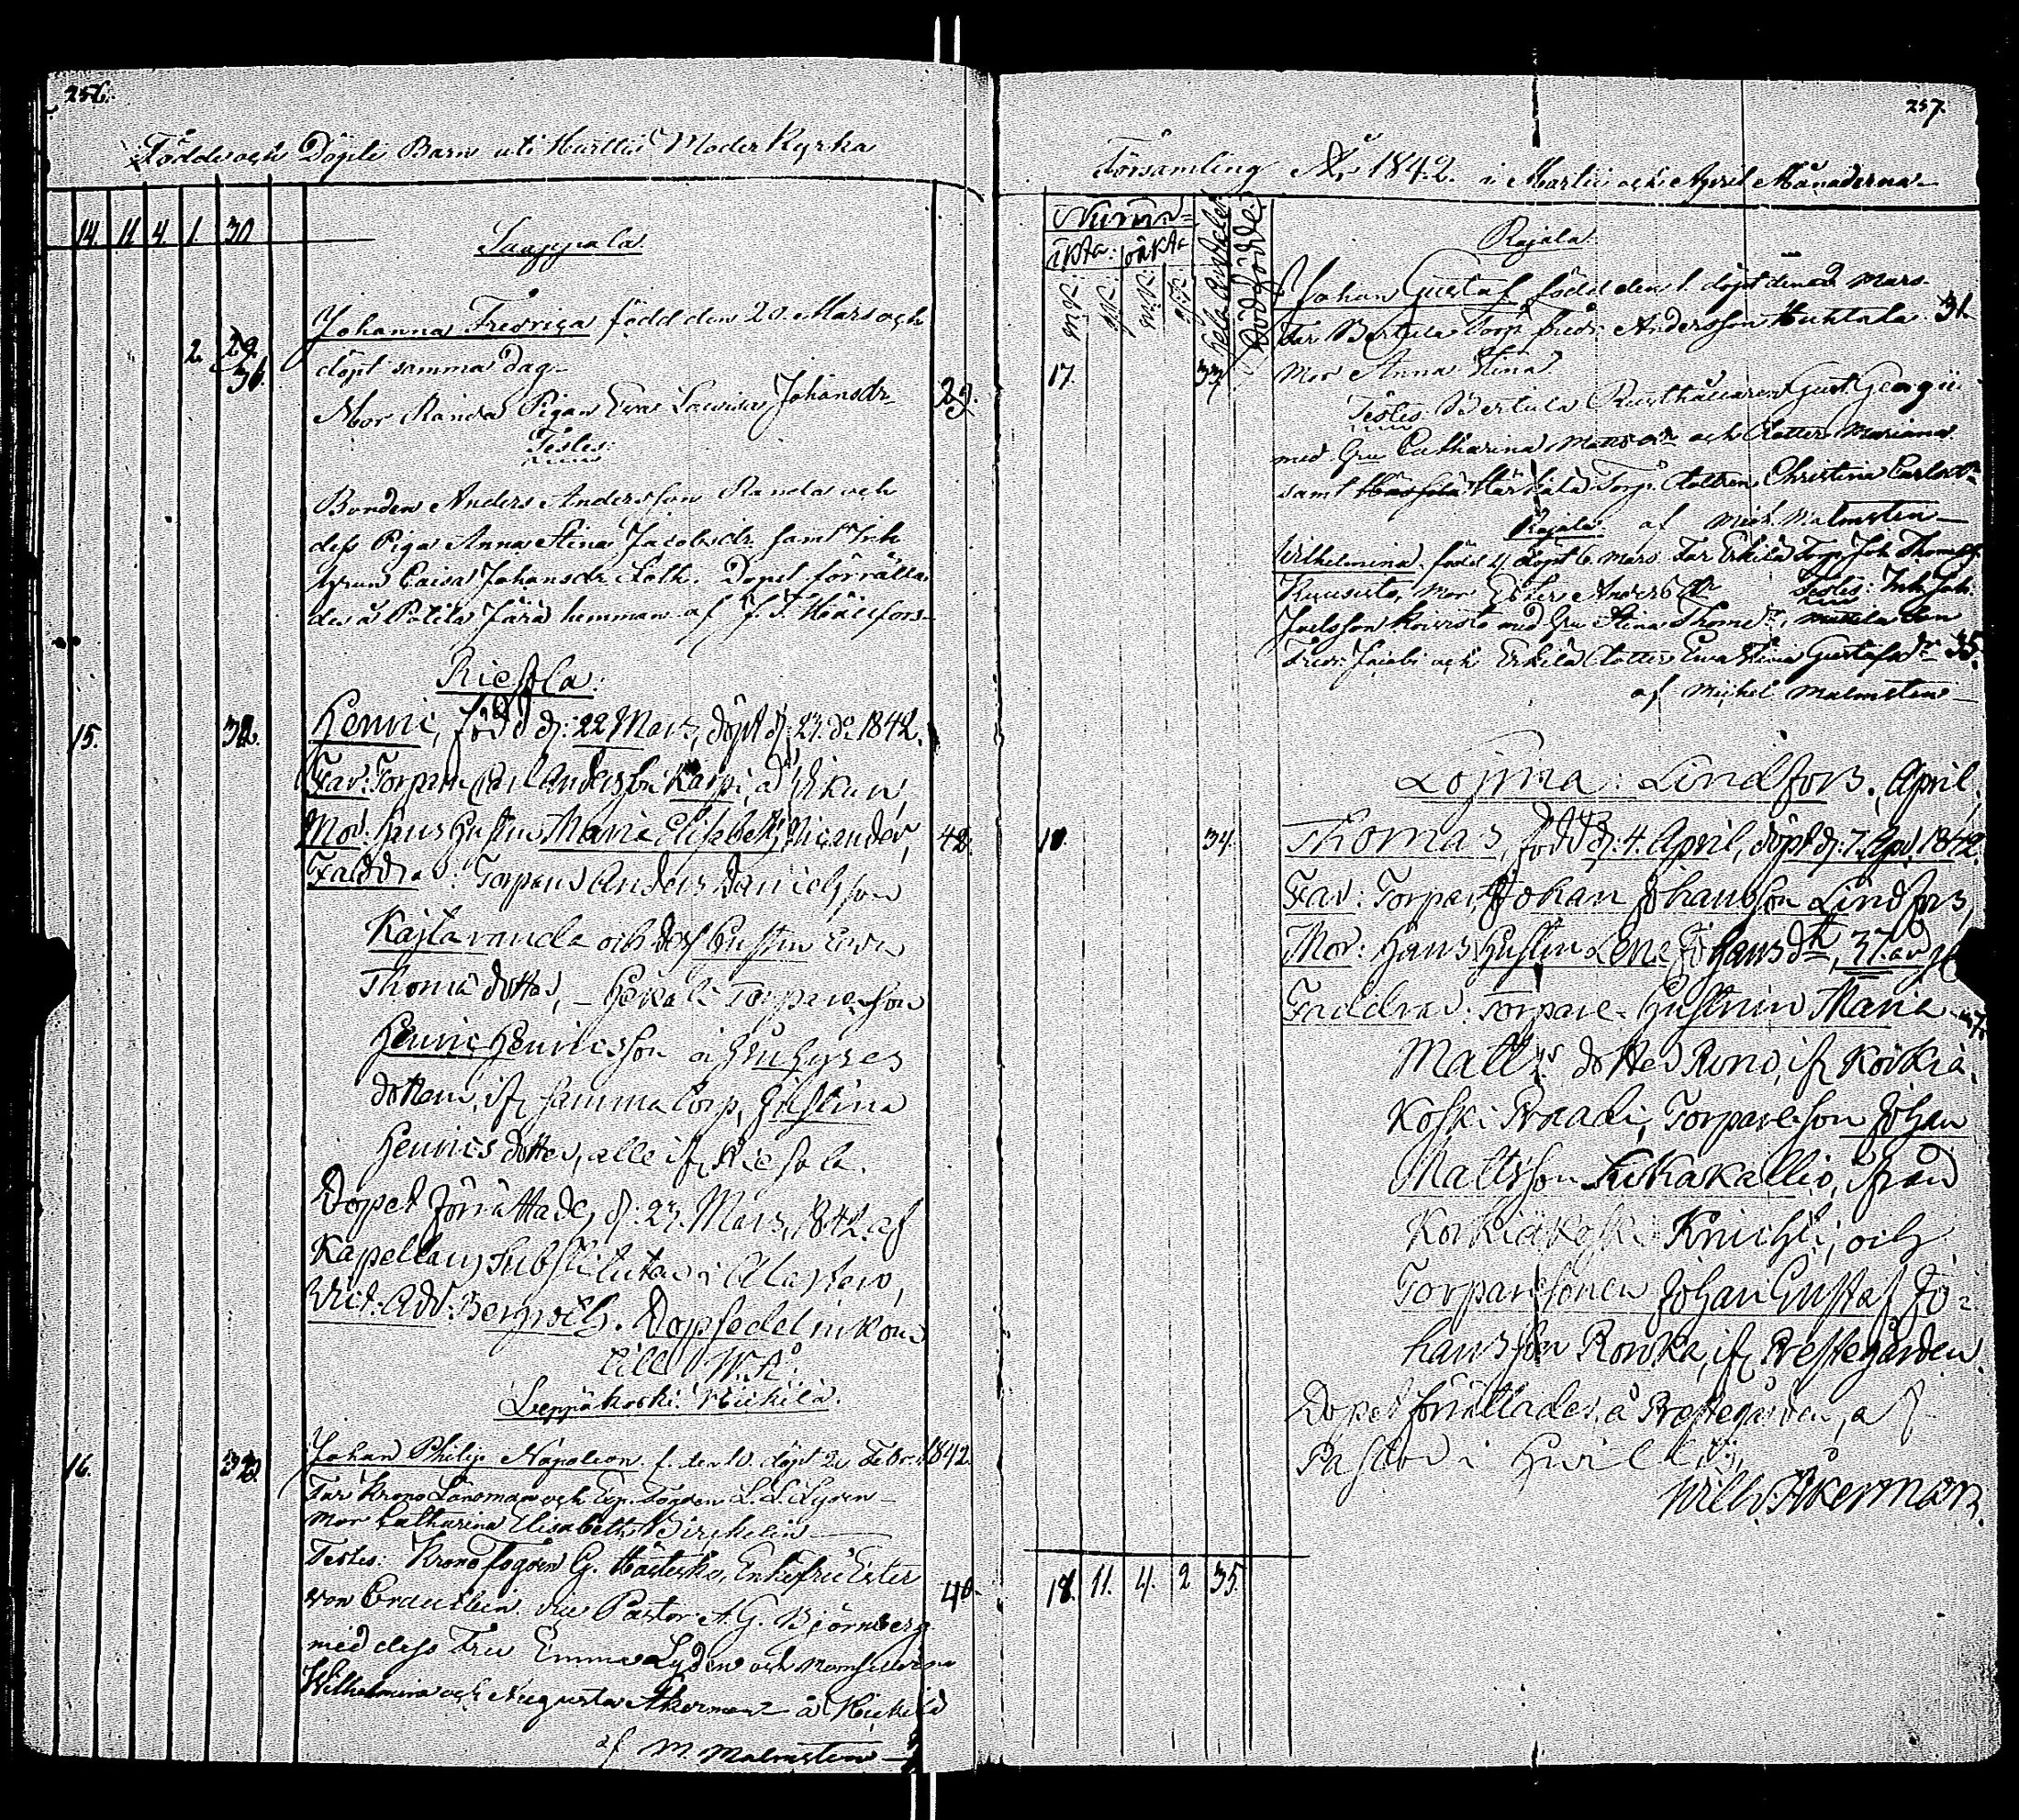 256.
Födde och Döpte Barn uti Hurttis Moder Kyrka
14. 11 4. 1. 30
Saappala.
Johanna Fredrica född den 20. Mars och
2. 29.
31.
döpt samma dag.
Mor Randa Pigan Eva Lovisa Johansdr 29.
Testes:
Bonden Anders Andersson Randa och
dess Piga Anna Stina Jacobsdr samt Inh
Caisa Johansdr Dopet förrätta-
des å hemman af
Riesola.
15. 32. Henric, född d: 22 Mars, döpt d: 23. do 1842.
Far: Torparen Carl Andersson Karpi, å
Mor: Hans Hustru Maria Elisabeth Nicander, 42.
Faddrar: Torparen Anders Danielsson
Kajtaranda och dess Hustru Ewa
Thomä dotter, - Torpareson
Henric Henricsson och
dottern, ifr samma torp, Justina
Henrics dotter, alle ifr Riesola.
Dopet förrättades d: 23. Mars, 1842. af
Kapellans Substituten i Alastaro,
Vict: Adv: Bergroth. Dopsedel inkom
till W. Å:
Leppäkoski: Niukilä.
16. 33. Johan Philip Napoleon f. den 10. döpt 20 Febr. 1842.
Far Krono Länsman och Exp. Fogden L. L. Lyden
Mor Catharina Elisabeth
Testes: Krono Fogden G. Hästesko, Enkefru Ester
von vice Pastor A. G. Björnberg 40.
med dess Fru Emma Lyden och mamsellerna
Wilhelmina och Augusta Åkerman å
af M. Malmsten

257.
Församling År 1842. i Martii och April Månaderna
Num
äkta: oäkta
mk. qk. mk. qk. hela Antalet dödfödde
Rajala.
Johan Gustaf född den 1 döpt den 2 Mars
Far Bertula Torp. Fredr. Andersson Huhtala 31.
17. 33. Mor Anna Stina
Testes Bertula Rusthållaren Gust. Georgii
med Hu Catharina Mattsdr och dotter Mariana
samt Härkälä Torp. dottren Christina Carlsdr
Rajala. af Mich. Malmsten
Wilhelmina född 4 döpt 6 Mars Far Erkilä Torp. Joh Thomass.
Kuusisto, Mor Ester Andersdr Testes: Inh Joh.
Joelsson Koivisto med Hu Stina Thomedr, Mattila Son
Fredr. Jacobs och Erkilä dotter Ewa Stina Gustafsdr 35.
af Michel Malmsten
Lojma: Lindfors. April.
18. 34. Thomas, född d: 4. April, döpt d: 7. Apr. 1842.
Far: Torparen Johan Johansson Lindfors,
Mor: Hans Hustru Lena Johans dr, 37. år
Faddrar: Torpare-Hustrun Maria 37.
Matts dotter Rono, ifr Körkiä-
koski Praadi, Torpareson Johan
Mattsson Kukakallio, ifrån
Korkiäkoski Knichti, och
Torparesonen Johan Gustaf Jo-
hansson Ronka, ifr Prestegården.
Dopet förrättades, å Prestegården, af
Pastor i
Wilh. Åkerman.
18. 11. 4. 2 35.